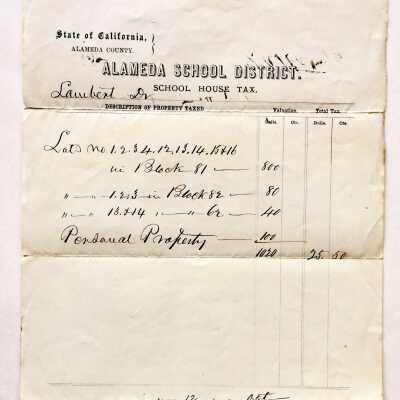 State of California,
ALAMEDA COUNTY.
ALAMEDA SCHOOL DISTRICT.
SCHOOL HOUSE TAX.
Lambert Dr
DESCRIPTION OF PROPERTY TAXED Valuation. Total Tax.
Dolls. Cts. Dolls. Cts.
Lots No 1.2.3.4.12.13.14.15&16
in Block 81 — 800
" — " 1.2&3 in Block 82 — 80
" — " 13&14 " — " 62 — 40
Personal Property — 100
1020 25. 50